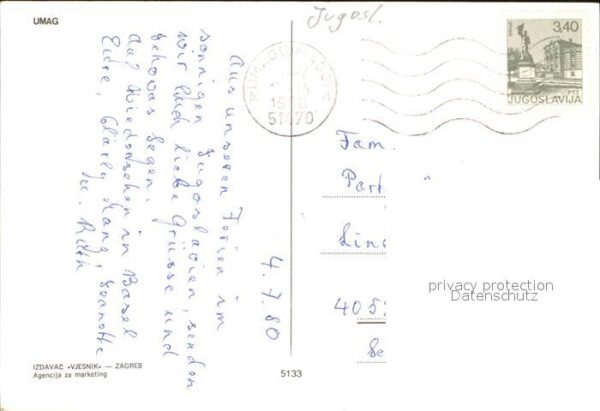 UMAG
Jugosl.
3,40
JUGOSLAVIJA
1980
51470
Aus unseren Ferien im
sonnigen Jugoslavien, senden
wir Euch liebe Grüsse und
Jehovas Segen.
Auf Wiedersehen in Basel
Eure, Charly Mang, Jeanette
u. Ruth
4.7.80
Fam.
Part
Lin
405
Se
privacy protection
Datenschutz
IZDAVAČ «VJESNIK» — ZAGREB
Agencija za marketing
5133